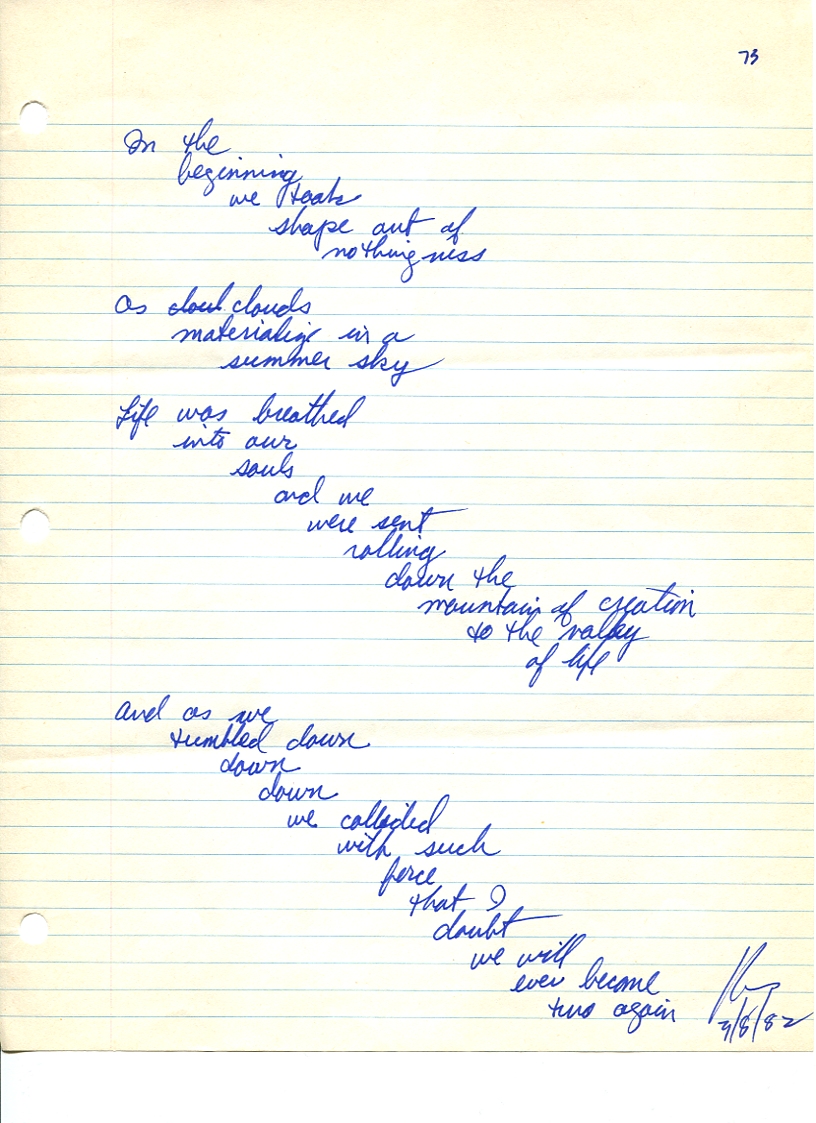 73
In the
beginning
we took
shape out of
nothingness
As clouds
materialize in a
summer sky
Life was breathed
into our
souls
and we
were sent
rolling
down the
mountain of creation
to the valley
of life
And as we
tumbled down
down
down
we collided
with such
force
that I
doubt
we will
ever become
two again
/8/82